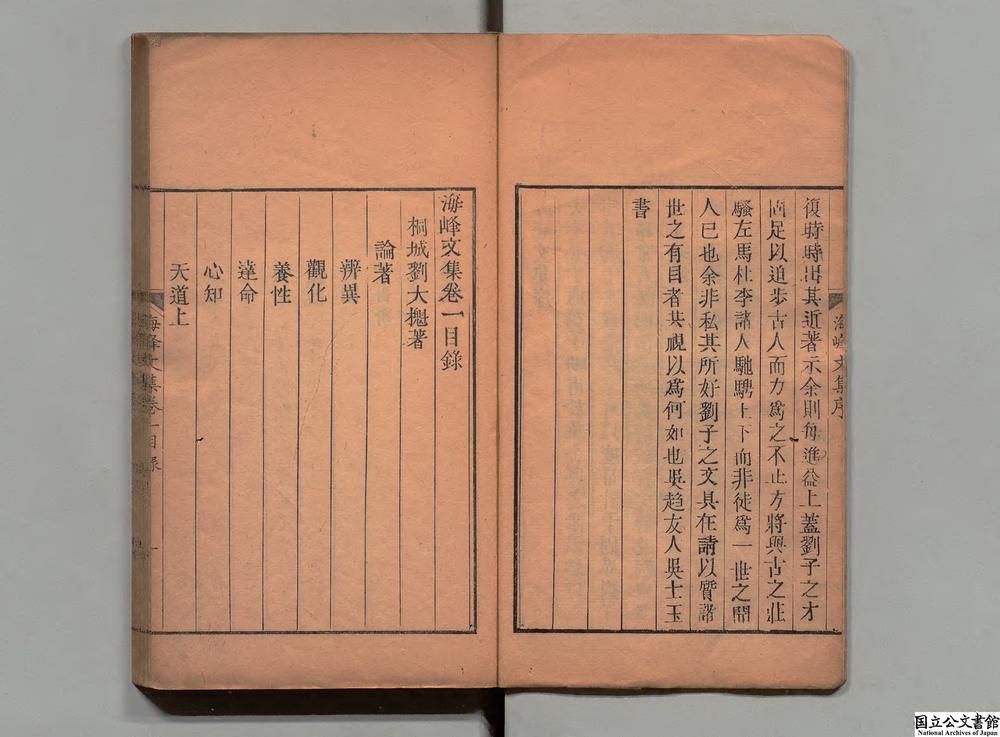 復時時出其近著示余則每進益上蓋劉子之才
固足以追步古人而力爲之不止方將與古之莊
騷左馬杜李諸人馳騁上下而非徒爲一世之聞
人已也余非私其所好劉子之文具在請以質諸
世之有目者共視以爲何如也吳趨友人吳士玉
書
海峰文集序
海峰文集卷一目錄
桐城劉大櫆著
論著
辨異
觀化
養性
達命
心知
天道上
海峰文集卷一目錄
一
国立公文書館
National Archives of Japan